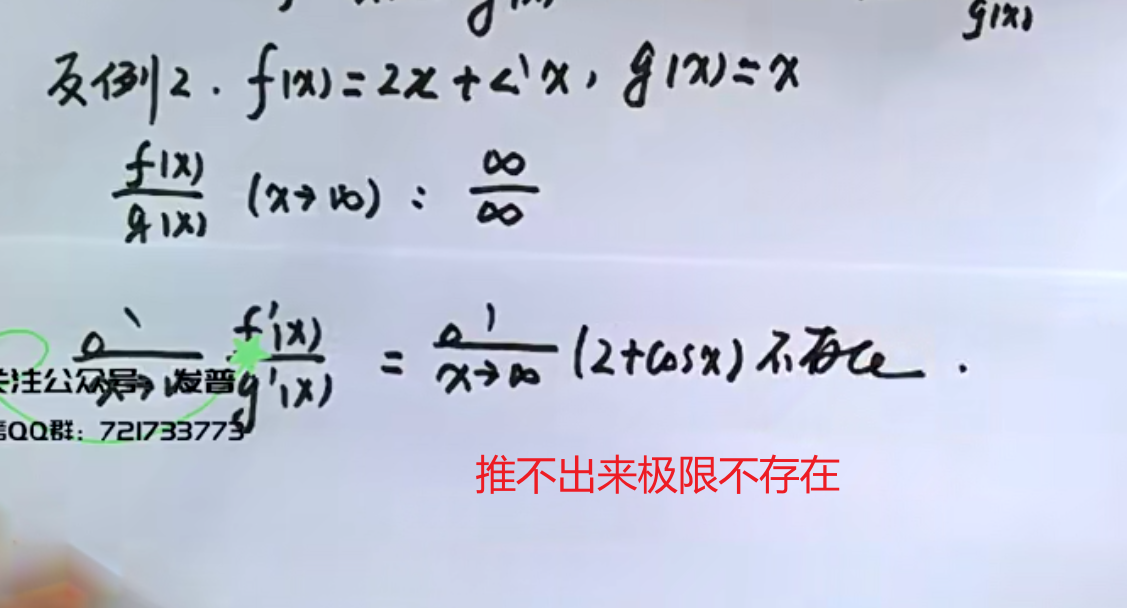 g(x)
g(x)
反例2. f(x)=2x+sin x, g(x)=x
f(x)/g(x) (x→∞): ∞/∞
lim x→∞ f'(x)/g'(x) = lim x→∞ (2+cosx) 不存在.
关注公众号: 发普
QQ群: 721733773
推不出来极限不存在